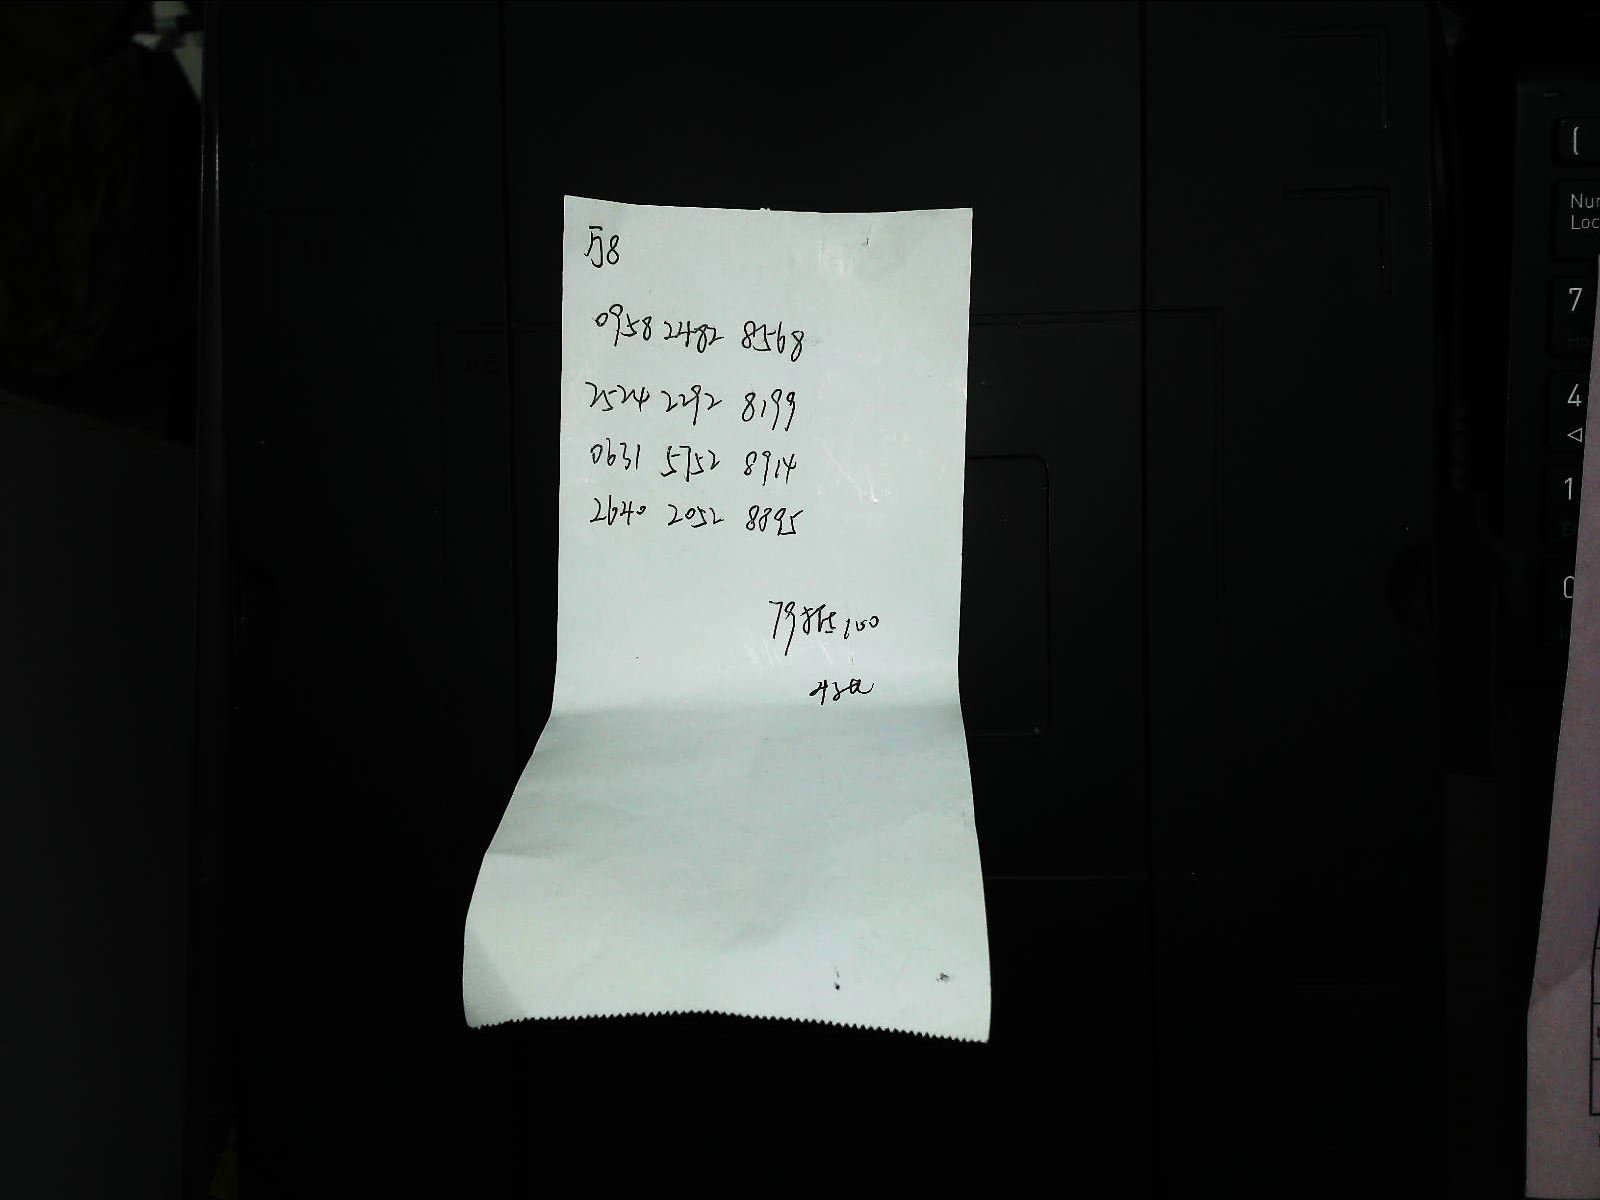 万8
0958 2482 8568
2524 2292 8199
0631 5752 8914
2640 2052 8895
各 100
Num
Loc
7
4
1
0